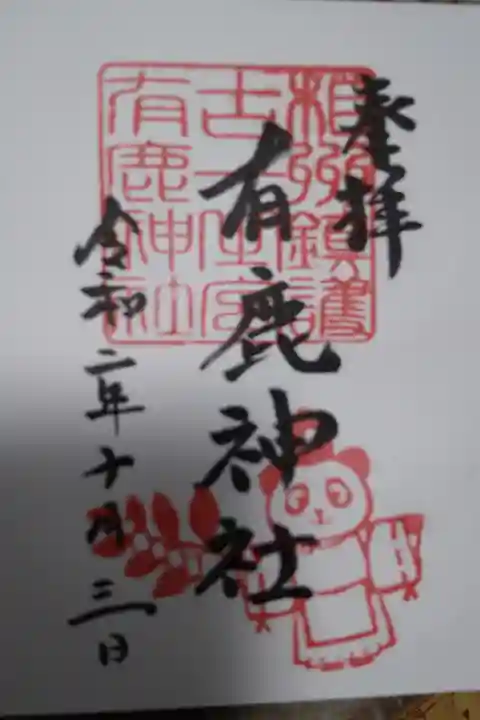 奉拝
有鹿神社
令和二年十月三日
相州鎮護
古一の宮
有鹿神社